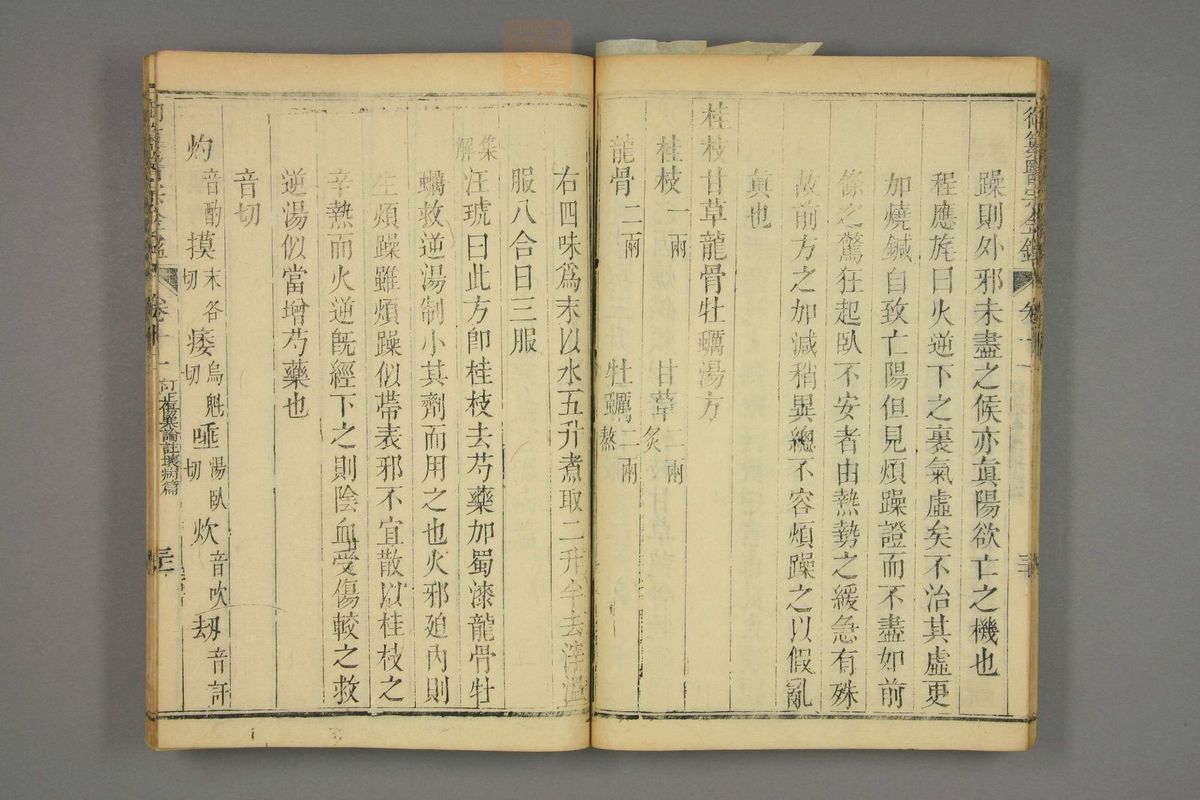 御纂醫宗金鑑 卷十一
躁則外邪未盡之候亦眞陽欲亡之機也
程應旄曰火逆下之裏氣虛矣不治其虛更
加燒鍼自致亡陽但見煩躁證而不盡如前
條之驚狂起臥不安者由熱勢之緩急有殊
故前方之加減稍異總不容煩躁之以假亂
眞也
桂枝甘草龍骨牡蠣湯方
桂枝一兩 甘草炙二兩
龍骨二兩 牡蠣熬二兩
右四味爲末以水五升煮取二升半去滓溫
服八合日三服
集解 汪琥曰此方卽桂枝去芍藥加蜀漆龍骨牡
蠣救逆湯制小其劑而用之也火邪廹內則
生煩躁雖煩躁似帶表邪不宜散以桂枝之
辛熱而火逆旣經下之則陰血受傷較之救
逆湯似當增芍藥也
音切
灼音酌 摸末各切 痿烏魁切 唾湯臥切 炊音吹 劫音訐
御纂醫宗金鑑 卷十一 訂正傷寒論註壞病篇